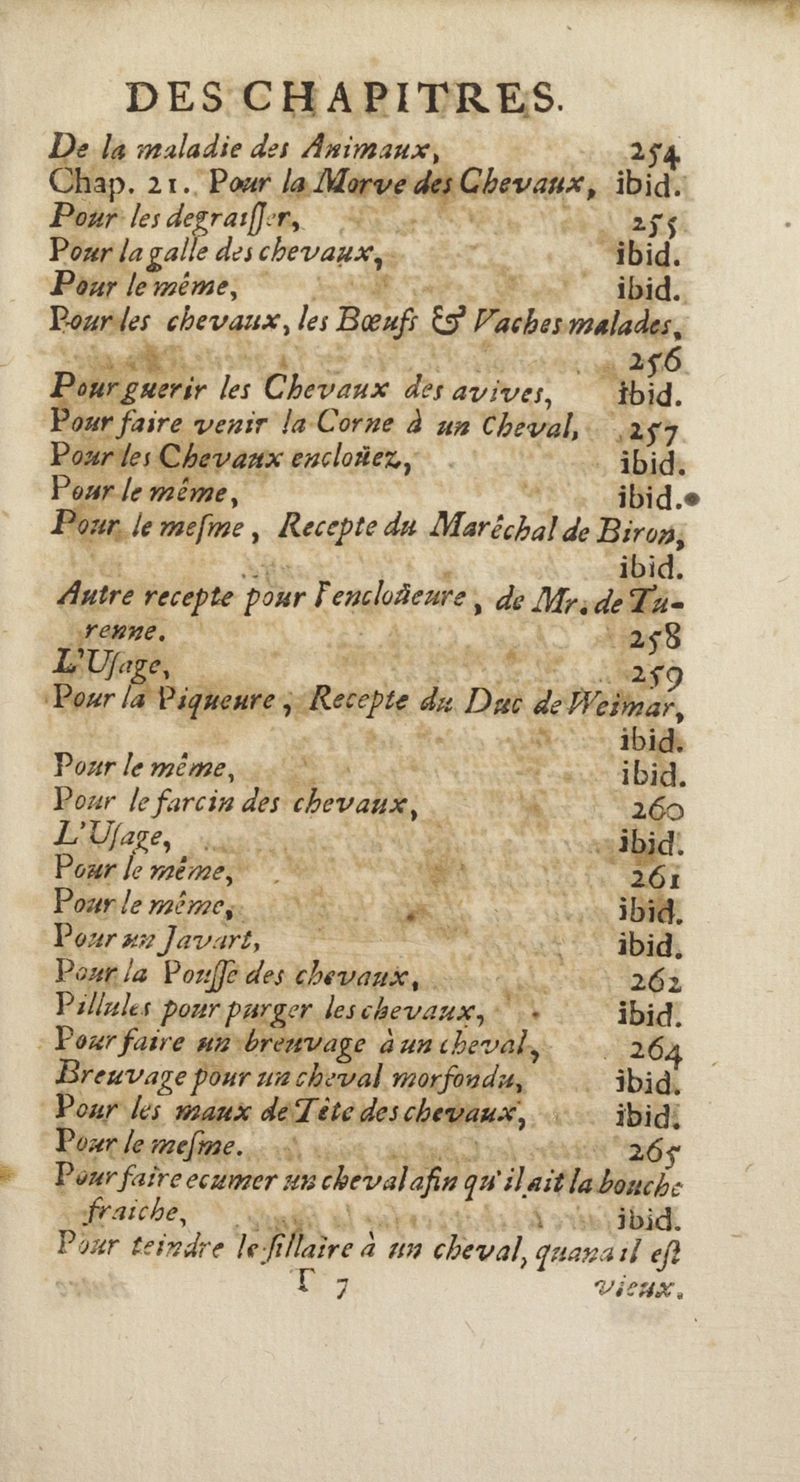 DES CHAPITRES.
De la maladie des Animaux, 254
Chap. 21. Pour la Morve des Chevaux, ibid.
Pour les degraisser, 255
Pour la galle des chevaux, ibid.
Pour le même, ibid.
Pour les chevaux, les Bœufs & Vaches malades,
256
Pour guerir les Chevaux des avives, ibid.
Pour faire venir la Corne à un Cheval, 257
Pour les Chevaux encloüez, ibid.
Pour le même, ibid.
Pour le mesme, Recepte du Marêchal de Biron,
ibid.
Autre recepte pour l'encloüeure, de Mr. de Tu-
renne. 258
L'Usage, 259
Pour la Piqueure, Recepte du Duc de Weimar,
ibid.
Pour le même, ibid.
Pour le farcin des chevaux, 260
L'Usage, ibid.
Pour le même, 261
Pour le même, ibid.
Pour un Javart, ibid.
Pour la Pousse des chevaux, 262
Pillules pour purger les chevaux, ibid.
Pour faire un breuvage à un cheval, 264
Breuvage pour un cheval morfondu, ibid.
Pour les maux de Tête des chevaux, ibid.
Pour le mesme. 265
Pour faire ecumer un cheval afin qu'il ait la bouche
fraiche, ibid.
Pour teindre le fillaire à un cheval, quand il est
T 7 vieux.